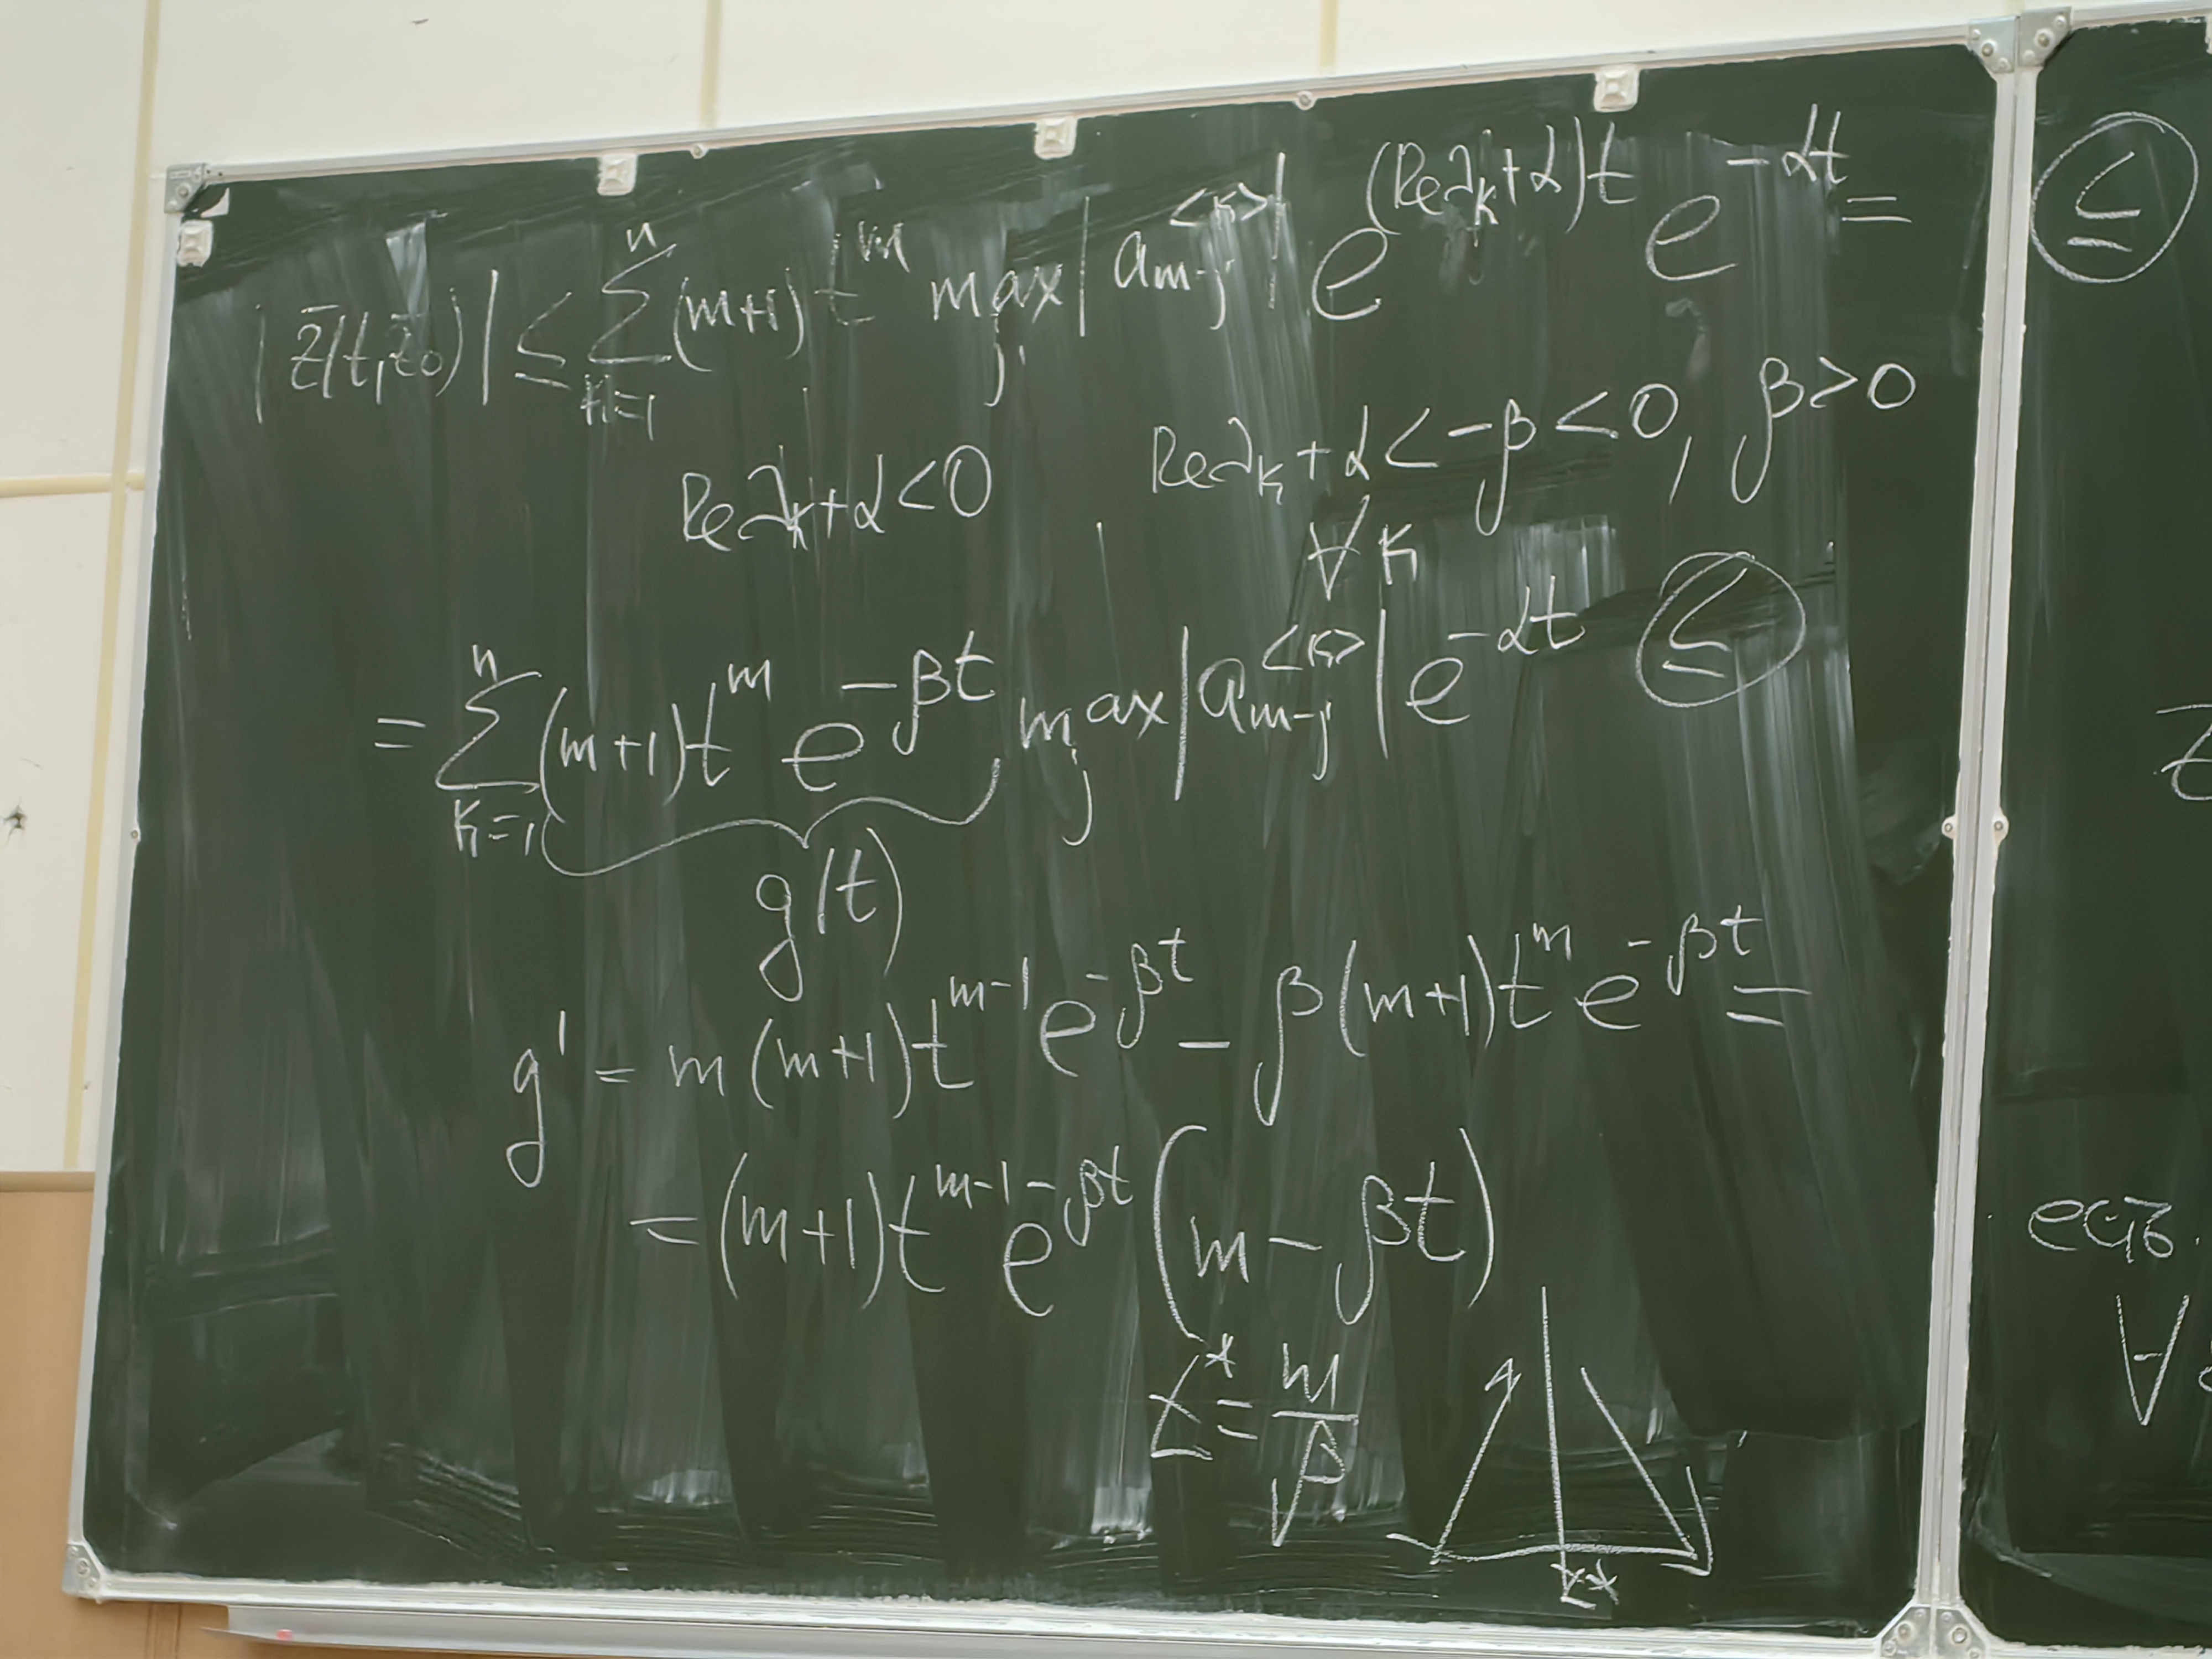 |z̄(t,z̄₀)| ≤ Σₖ₌₁ⁿ (m+1) tᵐ max_j |a_{m-j}^{<k>}| e^{(Reλₖ+α)t} e^{-αt} =
Reλₖ+α<0 Reλₖ+α<-β<0, β>0
∀ k
= Σₖ₌₁ⁿ (m+1)tᵐ e^{-βt} max_j |a_{m-j}^{<k>}| e^{-αt} ≤
g(t)
g' = m(m+1)t^{m-1} e^{-βt} - β(m+1)tᵐ e^{-βt} =
= (m+1)t^{m-1} e^{-βt} (m-βt)
t* = m/β
t*
≤
z
есть
∀